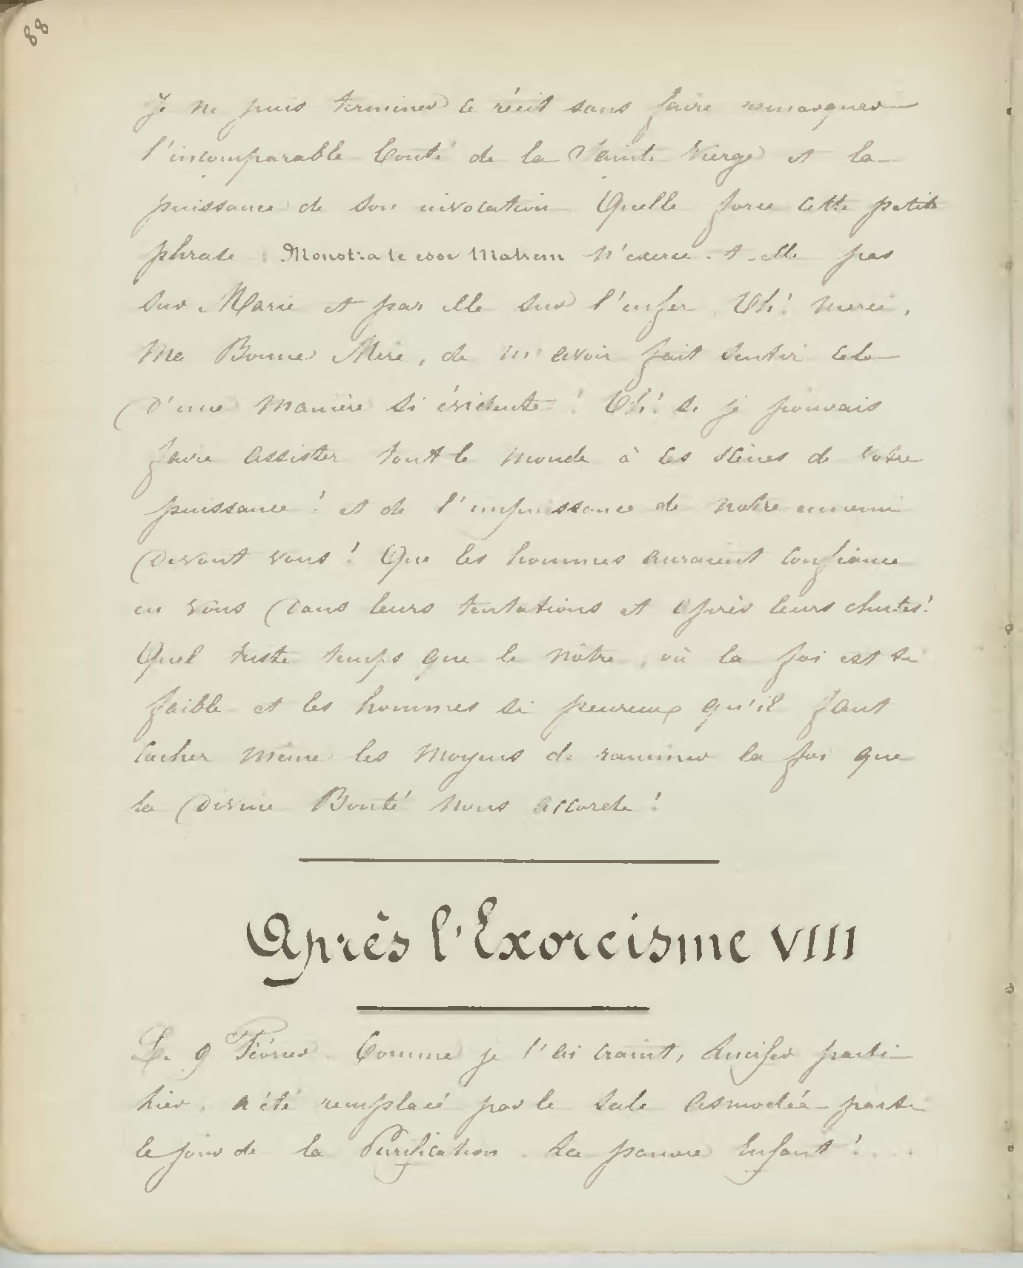 88
Je ne puis terminer ce récit sans faire remarquer
l'incomparable bonté de la Sainte Vierge et la
puissance de son invocation. Quelle force cette petite
phrase : Monstra te esse Matrem n'exerce-t-elle pas
sur Marie et par elle sur l'enfer. Oh! merci,
Ma Bonne Mère, de m'avoir fait sentir cela
d'une manière si évidente! Oh! si je pouvais
faire assister tout le monde à ces scènes de votre
puissance! et de l'impuissance de notre ennemi
devant vous! Que les hommes auraient confiance
en vous dans leurs tentations et après leurs chutes!
Quel triste temps que le nôtre, où la foi est si
faible et les hommes si peureux qu'il faut
cacher même les moyens de ranimer la foi que
la divine Bonté nous accorde!
Après l'Exorcisme VIII
Le 9 Février. Comme je l'ai craint, Lucifer parti
hier, a été remplacé par le sale Asmodée parti
le jour de la Purification. La pauvre Enfant!....